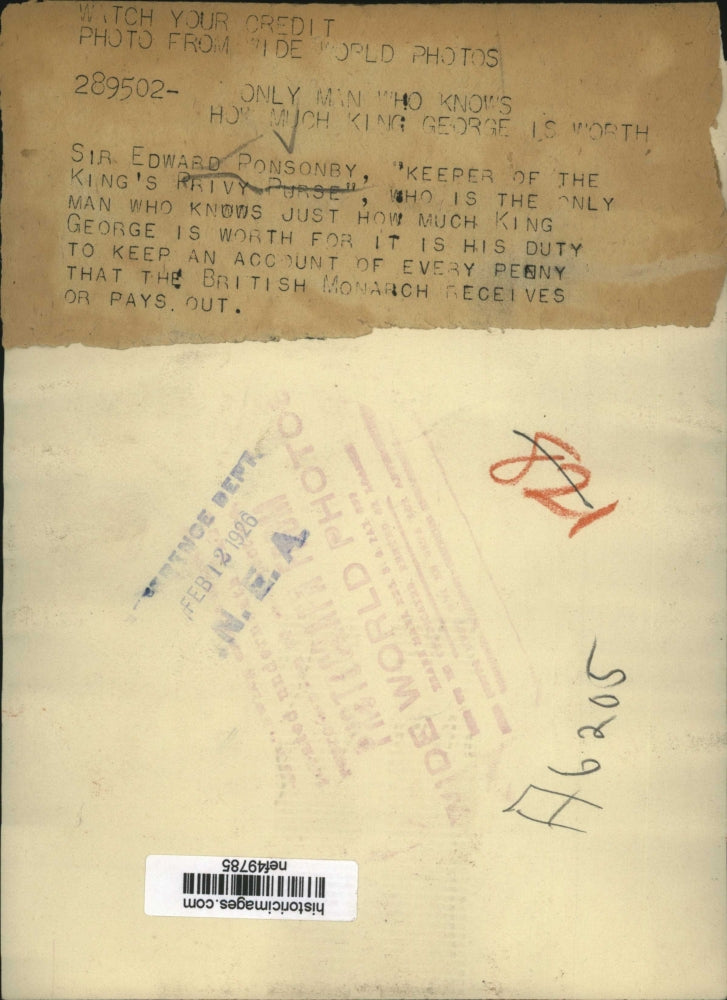 WATCH YOUR CREDIT
PHOTO FROM WIDE WORLD PHOTOS
289502-
ONLY MAN WHO KNOWS
HOW MUCH KING GEORGE IS WORTH
SIR EDWARD PONSONBY, "KEEPER OF THE
KING'S PRIVY PURSE", WHO IS THE ONLY
MAN WHO KNOWS JUST HOW MUCH KING
GEORGE IS WORTH FOR IT IS HIS DUTY
TO KEEP AN ACCOUNT OF EVERY PENNY
THAT THE BRITISH MONARCH RECEIVES
OR PAYS OUT.
821
DEPT.
FEB 12 1926
N. E. A.
WIDE WORLD PHOTOS
A6205
historicimages.com
nef49785